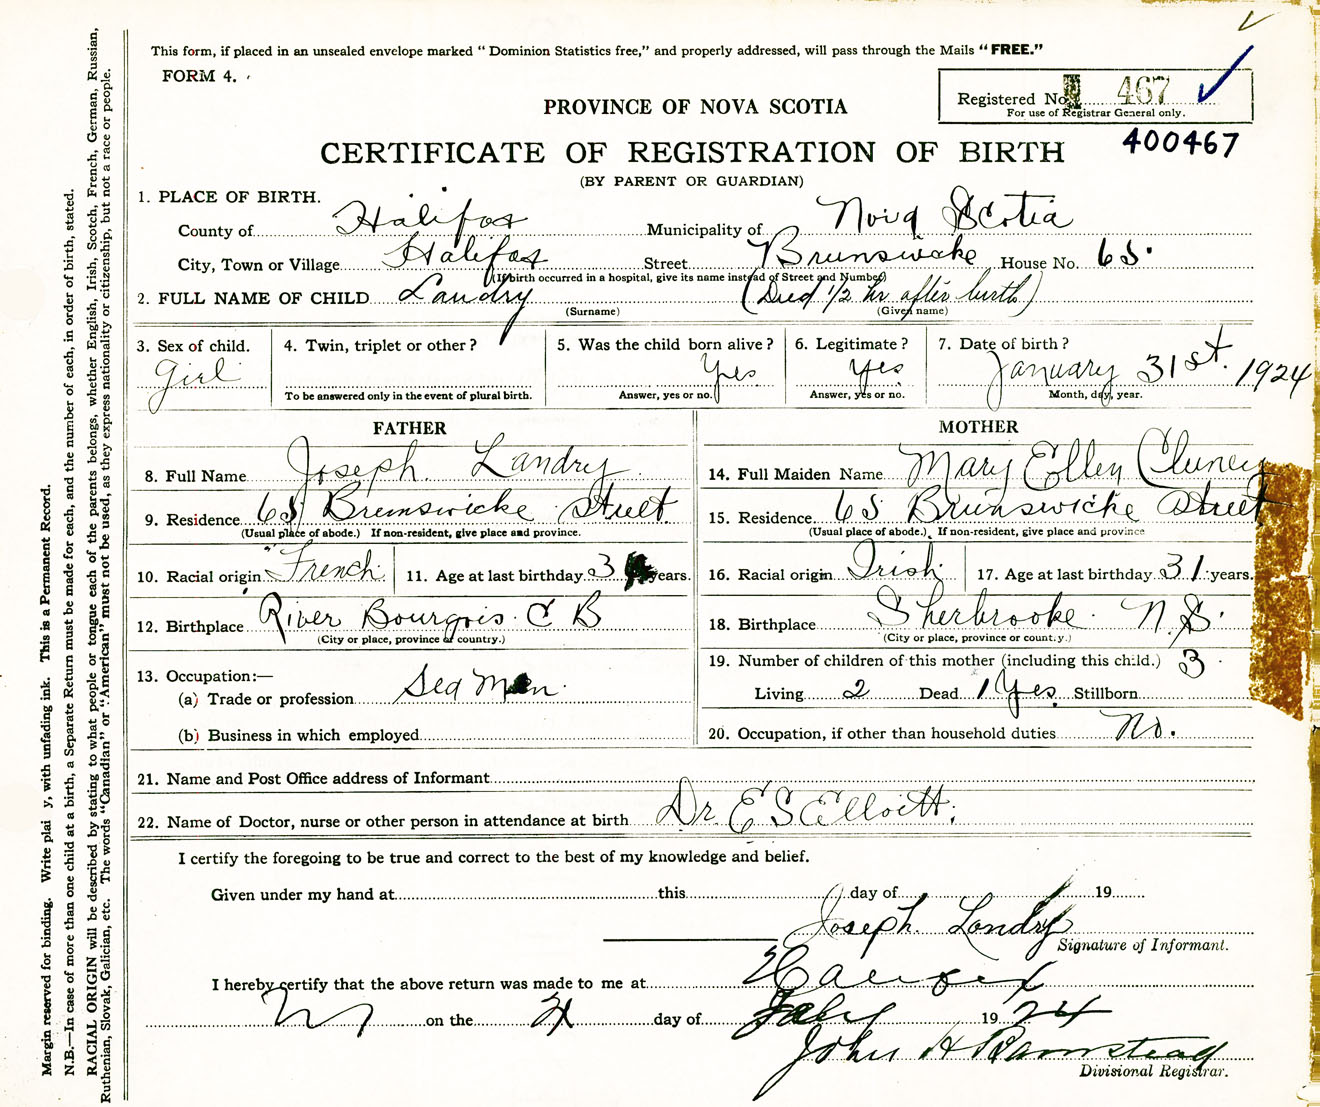 This form, if placed in an unsealed envelope marked “ Dominion Statistics free,” and properly addressed, will pass through the Mails “FREE.”
FORM 4.
Registered No. 467
For use of Registrar General only.
PROVINCE OF NOVA SCOTIA
400467
CERTIFICATE OF REGISTRATION OF BIRTH
(BY PARENT OR GUARDIAN)
1. PLACE OF BIRTH.
County of Halifax Municipality of Nova Scotia
City, Town or Village Halifax Street Brunswicke House No. 65.
(If birth occurred in a hospital, give its name instead of Street and Number)
2. FULL NAME OF CHILD Landry (Died 1/2 hr after birth)
(Surname) (Given name)
3. Sex of child. 4. Twin, triplet or other? 5. Was the child born alive? 6. Legitimate? 7. Date of birth?
Girl Yes Yes January 31st. 1924
To be answered only in the event of plural birth. Answer, yes or no. Answer, yes or no. Month, day, year.
FATHER MOTHER
8. Full Name Joseph Landry 14. Full Maiden Name Mary Ellen Cluney
9. Residence 65 Brunswicke Street 15. Residence 65 Brunswicke Street
(Usual place of abode.) If non-resident, give place and province. (Usual place of abode.) If non-resident, give place and province
10. Racial origin French 11. Age at last birthday 3 years. 16. Racial origin Irish 17. Age at last birthday 31 years.
12. Birthplace River Bourgois. C B 18. Birthplace Sherbrooke. N.S.
(City or place, province or country.) (City or place, province or country.)
13. Occupation:— 19. Number of children of this mother (including this child.) 3
(a) Trade or profession Sea Man. Living 2 Dead 1 Yes. Stillborn
(b) Business in which employed 20. Occupation, if other than household duties No.
21. Name and Post Office address of Informant
22. Name of Doctor, nurse or other person in attendance at birth Dr. E S Elloitt.
I certify the foregoing to be true and correct to the best of my knowledge and belief.
Given under my hand at this day of 19
Joseph Landry
Signature of Informant.
I hereby certify that the above return was made to me at Halifax
on the day of Feby 1924
John H Barnstead
Divisional Registrar.
Margin reserved for binding. Write plai y, with unfading ink. This is a Permanent Record.
N.B.—In case of more than one child at a birth, a Separate Return must be made for each, and the number of each, in order of birth, stated.
RACIAL ORIGIN will be described by stating to what people or tongue each of the parents belongs, whether English, Irish, Scotch, French, German, Russian,
Ruthenian, Slovak, Galician, etc. The words “Canadian” or “American” must not be used, as they express nationality or citizenship, but not a race or people.